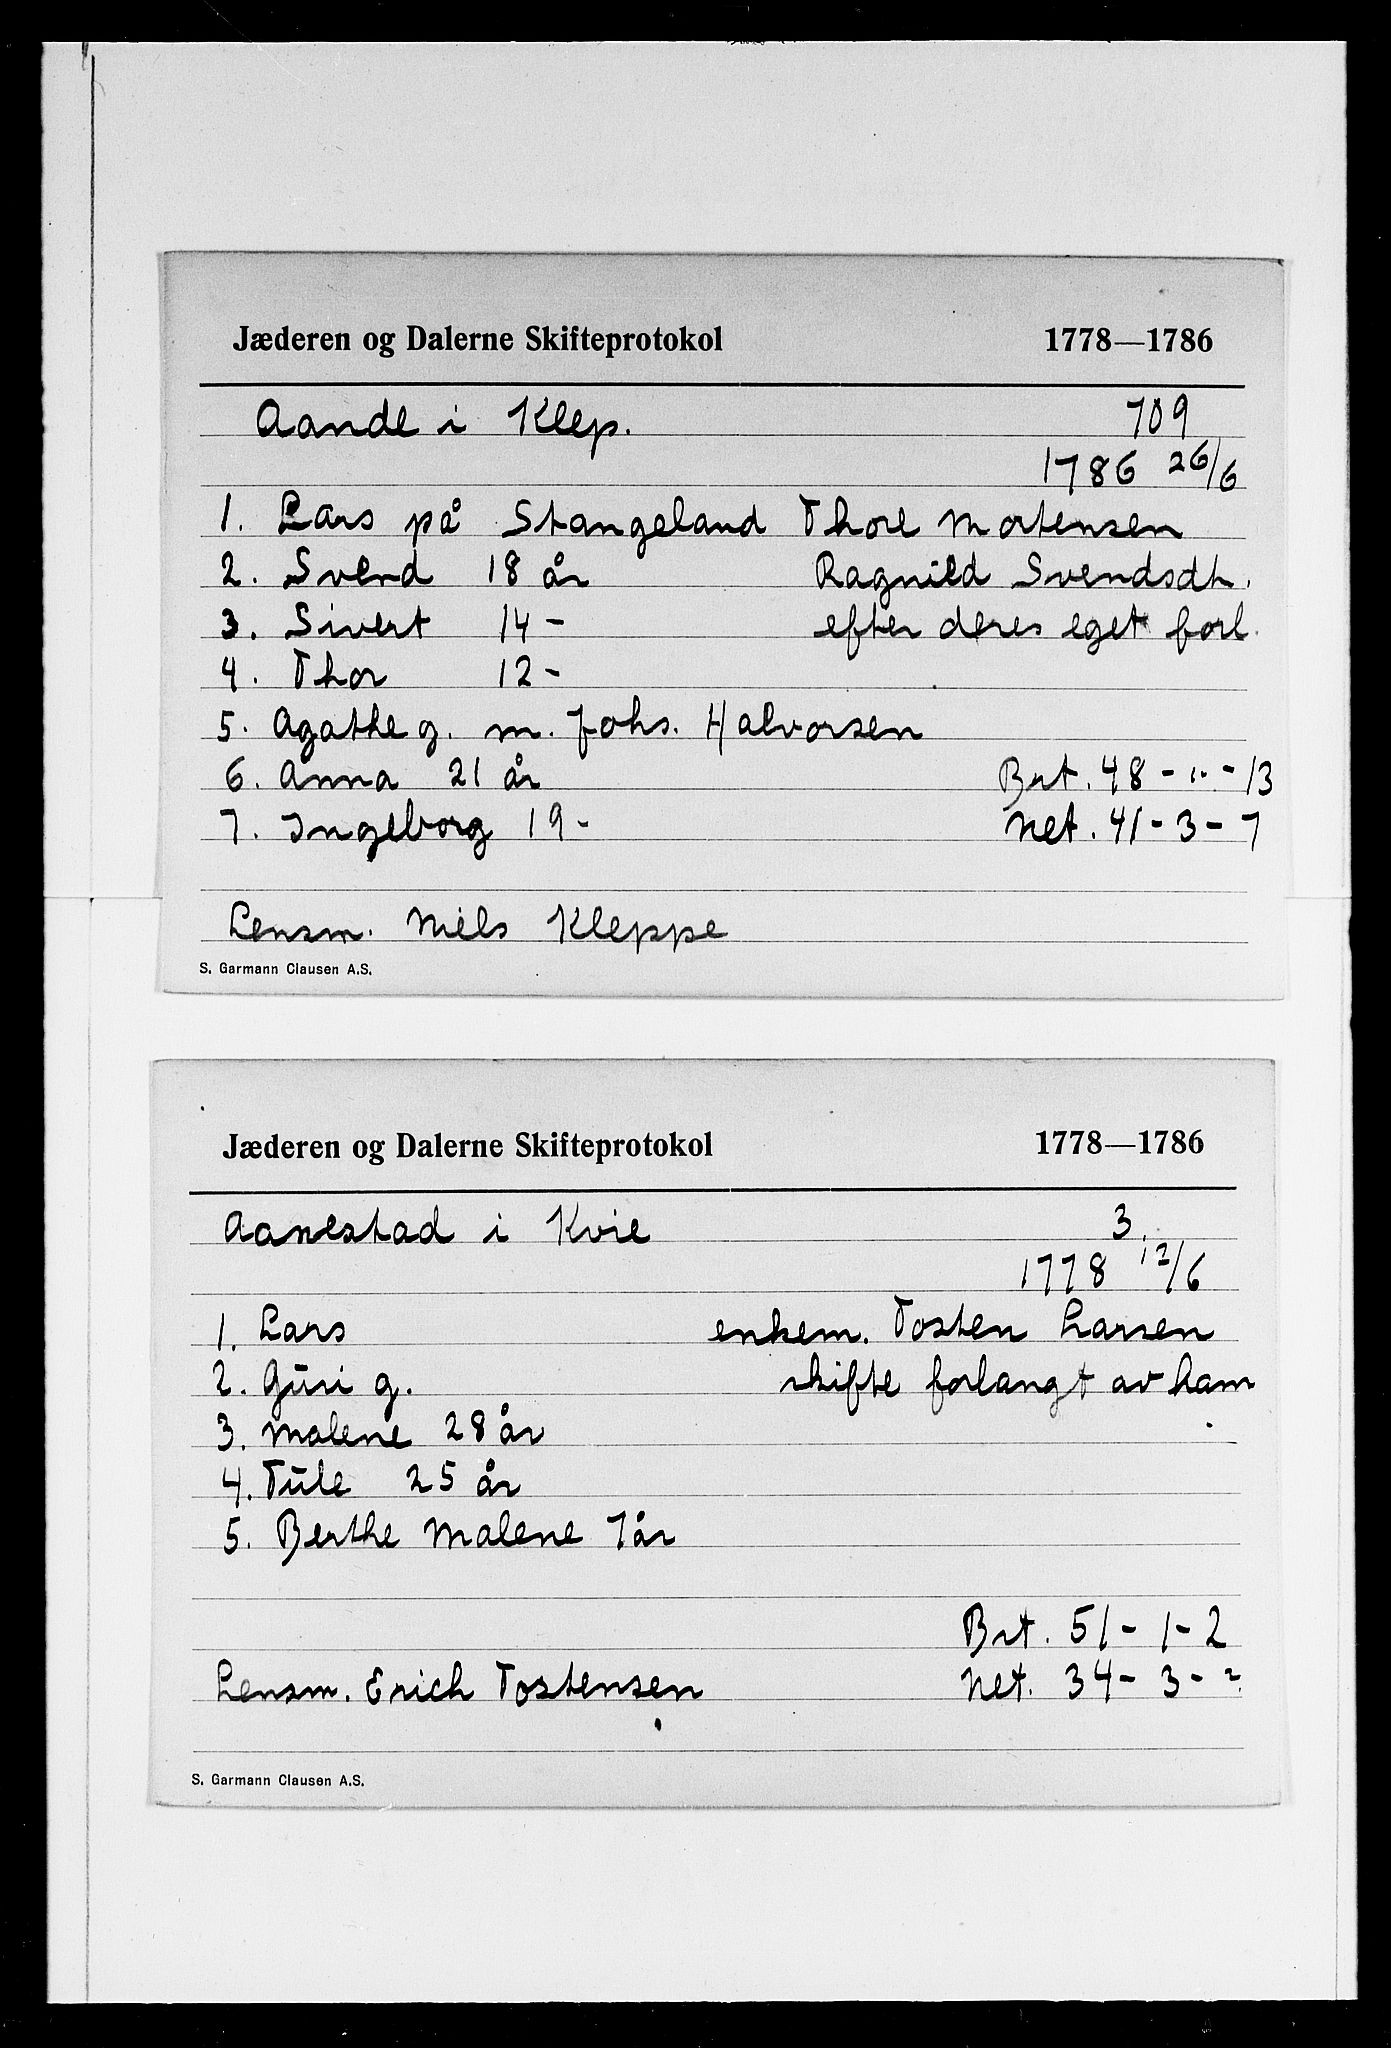 Jæderen og Dalerne Skifteprotokol 1778—1786
Aande i Klep. 709
1786 26/6
1. Lars på Stangeland Thore Mortensen
2. Svend 18 år Ragnild Svendsdt.
3. Sivert 14 - efter deres eget forl.
4. Thor 12 -
5. Agathe g. m. Johs. Halvorsen
6. Anna 21 år Brt. 48 - " - 13
7. Ingeborg 19 - Net. 41 - 3 - 7
Lensm. Niels Kleppe
S. Garmann Clausen A.S.
Jæderen og Dalerne Skifteprotokol 1778—1786
Aanestad i Kvie 3.
1778 12/6
1. Lars enkem. Tosten Larsen
2. Guri g. skifte forlangt av ham
3. Malene 28 år
4. Tule 25 år
5. Berthe Malene 7 år
Brt. 51 - 1 - 2
Lensm. Erich Tostensen Net. 34 - 3 - 2
S. Garmann Clausen A.S.